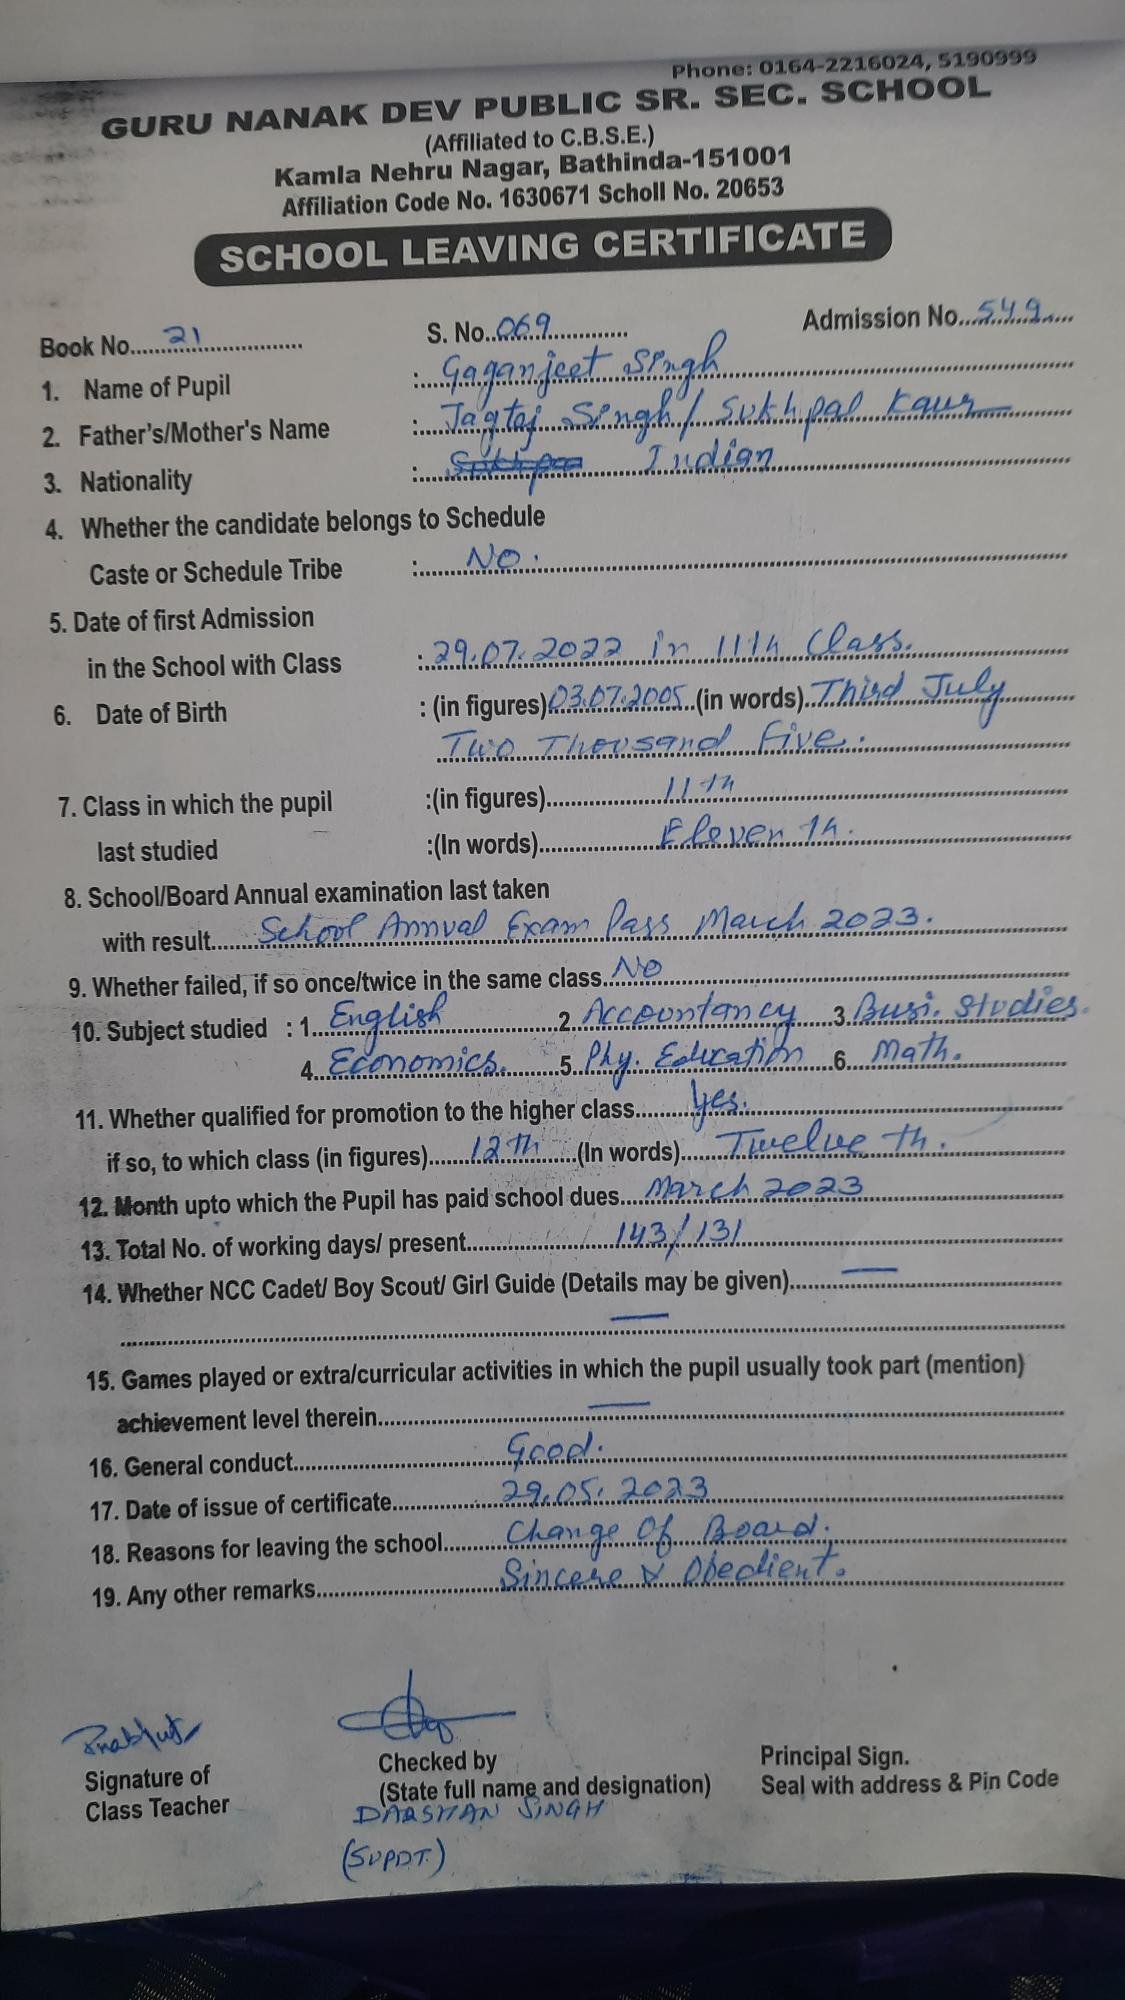 Phone: 0164-2216024, 5190999
GURU NANAK DEV PUBLIC SR. SEC. SCHOOL
(Affiliated to C.B.S.E.)
Kamla Nehru Nagar, Bathinda-151001
Affiliation Code No. 1630671 Scholl No. 20653
SCHOOL LEAVING CERTIFICATE
Book No. 21 S. No. 069 Admission No. 549
1. Name of Pupil : Gaganjeet Singh
2. Father's/Mother's Name : Jagtaj Singh / Sukhpal Kaur
3. Nationality : Indian
4. Whether the candidate belongs to Schedule
Caste or Schedule Tribe : No.
5. Date of first Admission
in the School with Class : 29.07.2022 in 11th Class.
6. Date of Birth : (in figures) 03.07.2005 (in words) Third July
Two Thousand Five.
7. Class in which the pupil :(in figures) 11th
last studied :(In words) Eleventh.
8. School/Board Annual examination last taken
with result School Annual Exam Pass March 2023.
9. Whether failed, if so once/twice in the same class. No
10. Subject studied : 1. English 2. Accountancy 3. Busi. Studies.
4. Economics. 5. Phy. Education 6. Math.
11. Whether qualified for promotion to the higher class Yes.
if so, to which class (in figures) 12th (In words) Twelve th.
12. Month upto which the Pupil has paid school dues March 2023
13. Total No. of working days/ present 143/131
14. Whether NCC Cadet/ Boy Scout/ Girl Guide (Details may be given) —
—
15. Games played or extra/curricular activities in which the pupil usually took part (mention)
achievement level therein —
16. General conduct Good.
17. Date of issue of certificate 29.05.2023
18. Reasons for leaving the school Change Of Board.
19. Any other remarks Sincere & Obedient.
Signature of Checked by Principal Sign.
Class Teacher (State full name and designation) Seal with address & Pin Code
DARSHAN SINGH
(SUPDT.)